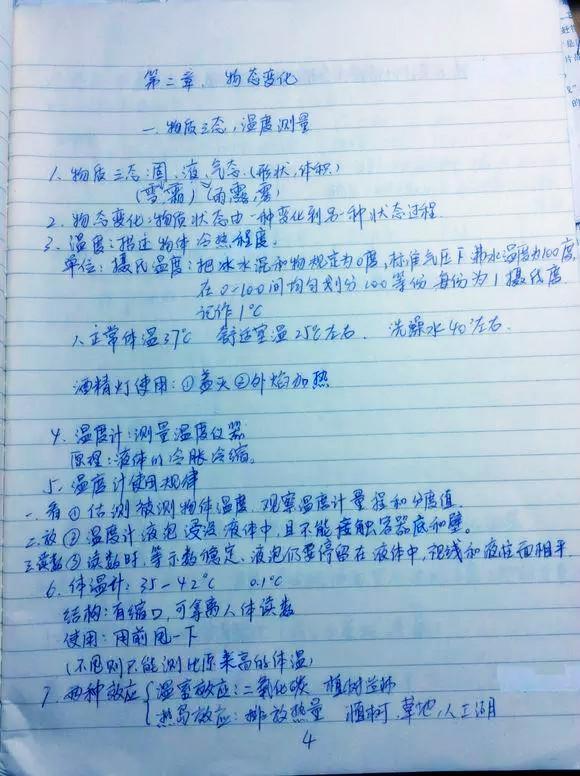 第二章、物态变化
一.物质三态,温度测量
1. 物质三态:固、液、气态.(形状,体积)
(雪,霜) (雨露,雾)
2. 物态变化:物质状态由一种变化到另一种状态过程.
3. 温度:描述物体冷热程度。
单位:摄氏温度:把冰水混和物规定为0度,标准气压下沸水温度为100度,
在0-100间均匀划分100等份 每份为1摄氏度
记作1℃
人正常体温37℃ 舒适室温25℃左右. 洗澡水40℃左右.
酒精灯使用:①盖灭②外焰加热
4. 温度计:测量温度仪器
原理:液体的冷胀冷缩。
5. 温度计使用规律
一.看 ① 估测被测物体温度,观察温度计量程和分度值.
二.放 ② 温度计液泡浸没液体中,且不能接触容器底和壁。
三.读数 ③ 读数时,等示数稳定、液泡仍要停留在液体中,视线和液柱面相平.
6. 体温计:35-42℃ 0.1℃
结构:有缩口,可拿离人体读数
使用:用前甩一下
(不甩则只能测比原来高的体温)
7. 两种效应 温室效应:二氧化碳 植树造林
热岛效应:排放热量 植树、草地,人工湖
4